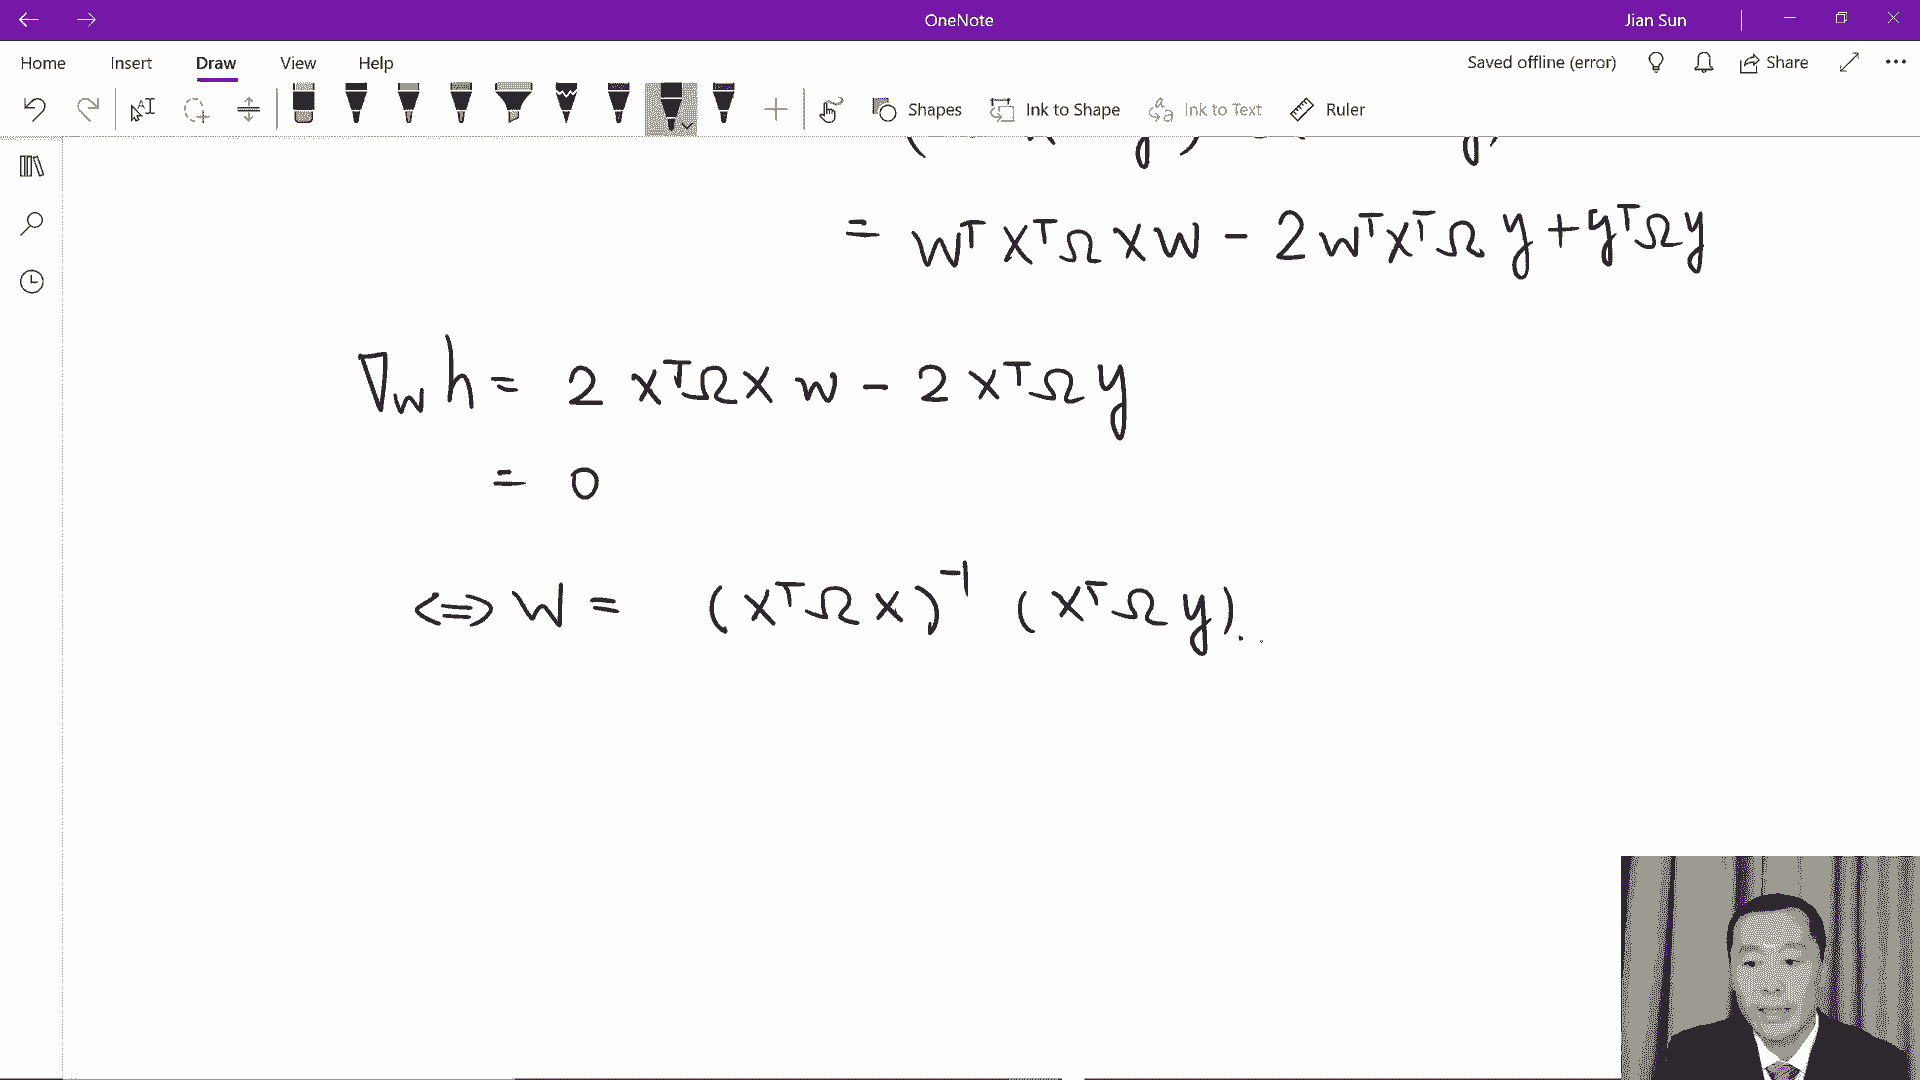 OneNote
Jian Sun
Home Insert Draw View Help
Saved offline (error)
Share
Shapes
Ink to Shape
Ink to Text
Ruler
= wᵀXᵀΩXw - 2wᵀXᵀΩy + yᵀΩy
∇_w h = 2 XᵀΩX w - 2 XᵀΩy
= 0
⇔ w = (XᵀΩX)⁻¹ (XᵀΩy).